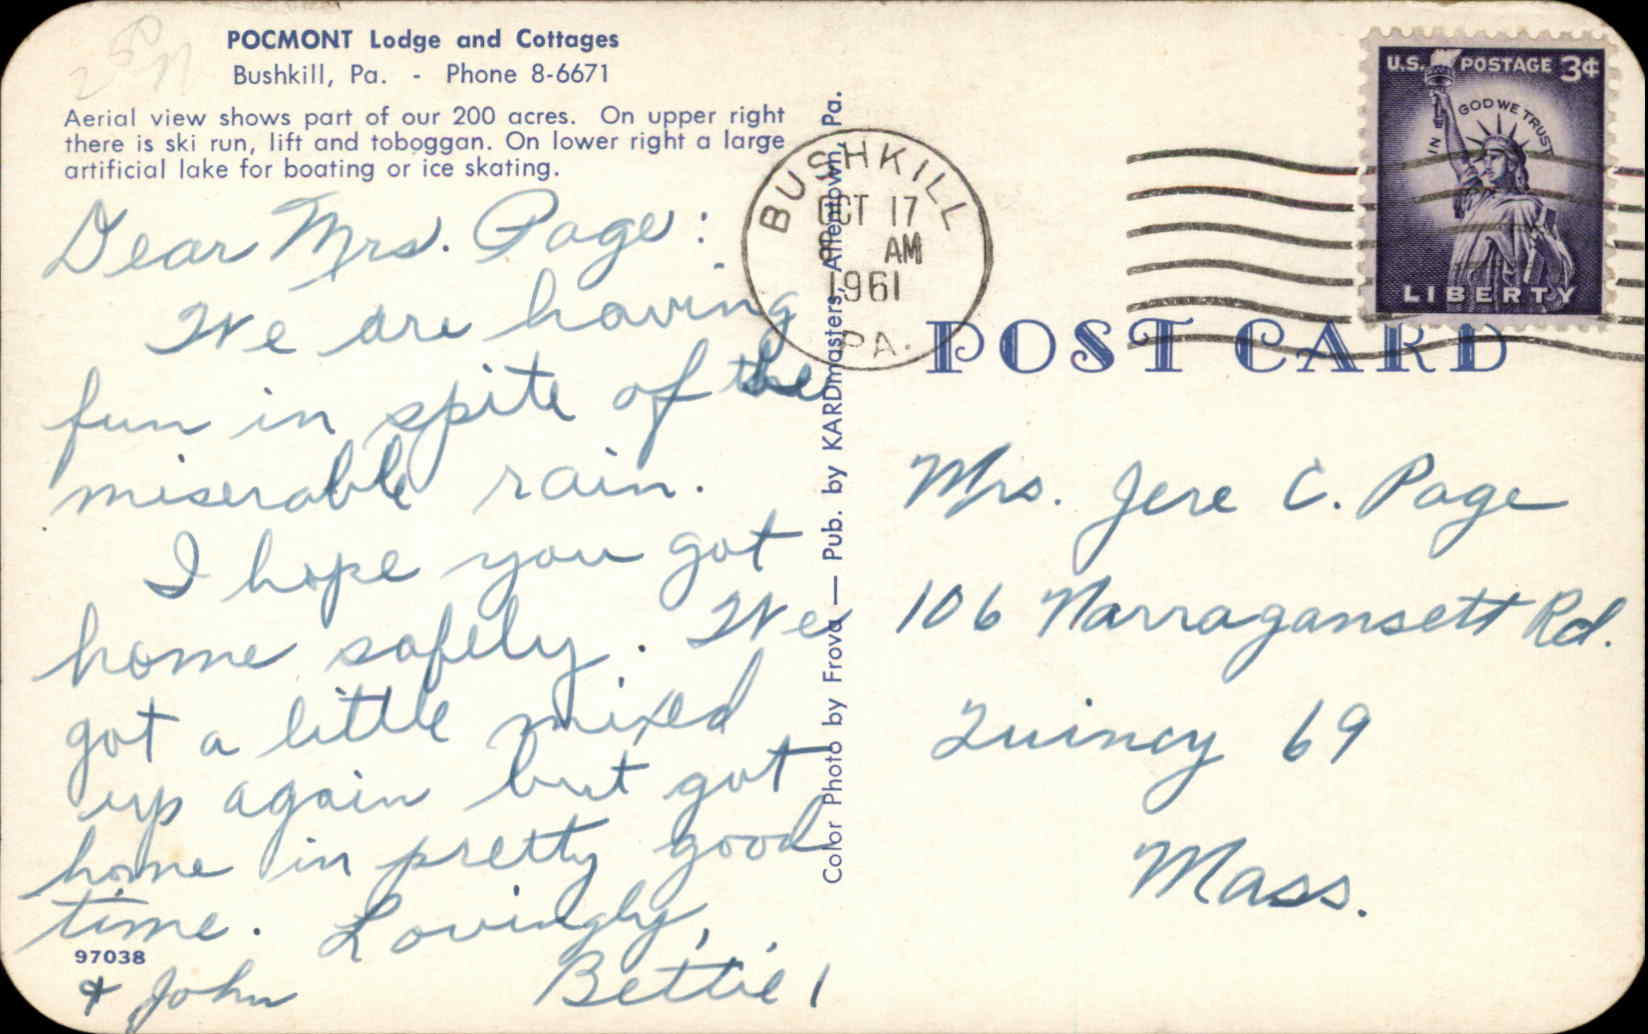 POCMONT Lodge and Cottages
Bushkill, Pa. - Phone 8-6671
Aerial view shows part of our 200 acres. On upper right
there is ski run, lift and toboggan. On lower right a large
artificial lake for boating or ice skating.
Dear Mrs. Page:
We are having
fun in spite of the
miserable rain.
I hope you got
home safely. We
got a little mixed
up again but got
home in pretty good
time. Lovingly,
97038
& John Bettie
Color Photo by Frova — Pub. by KARDmasters, Allentown, Pa.
BUSHKILL
OCT 17
AM
1961
PA.
U.S. POSTAGE 3¢
IN GOD WE TRUST
LIBERTY
POST CARD
Mrs. Jere C. Page
106 Narragansett Rd.
Quincy 69
Mass.